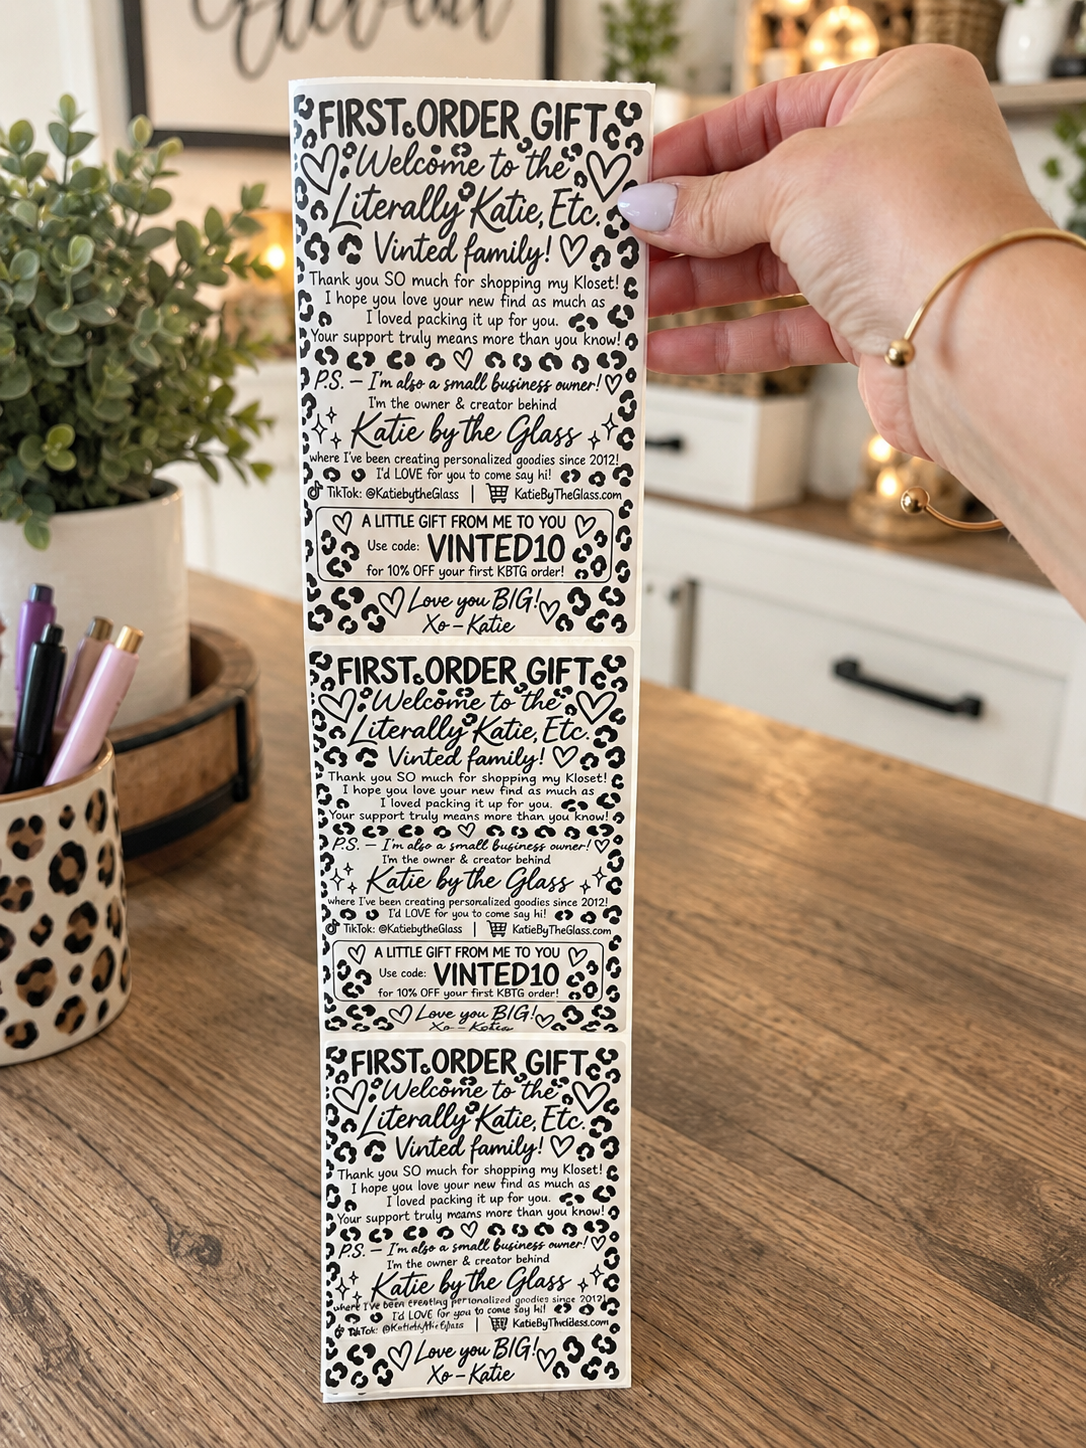 FIRST ORDER GIFT
Welcome to the
Literally Katie, Etc.
Vinted family!
Thank you SO much for shopping my Kloset!
I hope you love your new find as much as
I loved packing it up for you.
Your support truly means more than you know!
P.S. – I'm also a small business owner!
I'm the owner & creator behind
Katie by the Glass
where I've been creating personalized goodies since 2012!
I'd LOVE for you to come say hi!
TikTok: @KatiebytheGlass | KatieByTheGlass.com
A LITTLE GIFT FROM ME TO YOU
Use code: VINTED10
for 10% OFF your first KBTG order!
Love you BIG!
Xo – Katie
FIRST ORDER GIFT
Welcome to the
Literally Katie, Etc.
Vinted family!
Thank you SO much for shopping my Kloset!
I hope you love your new find as much as
I loved packing it up for you.
Your support truly means more than you know!
P.S. – I'm also a small business owner!
I'm the owner & creator behind
Katie by the Glass
where I've been creating personalized goodies since 2012!
I'd LOVE for you to come say hi!
TikTok: @KatiebytheGlass | KatieByTheGlass.com
A LITTLE GIFT FROM ME TO YOU
Use code: VINTED10
for 10% OFF your first KBTG order!
Love you BIG!
Xo – Katie
FIRST ORDER GIFT
Welcome to the
Literally Katie, Etc.
Vinted family!
Thank you SO much for shopping my Kloset!
I hope you love your new find as much as
I loved packing it up for you.
Your support truly means more than you know!
P.S. – I'm also a small business owner!
I'm the owner & creator behind
Katie by the Glass
where I've been creating personalized goodies since 2012!
I'd LOVE for you to come say hi!
TikTok: |
Love you BIG!
Xo – Katie